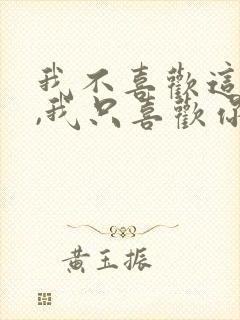 我不喜歡這
,我只喜歡你
黃玉振